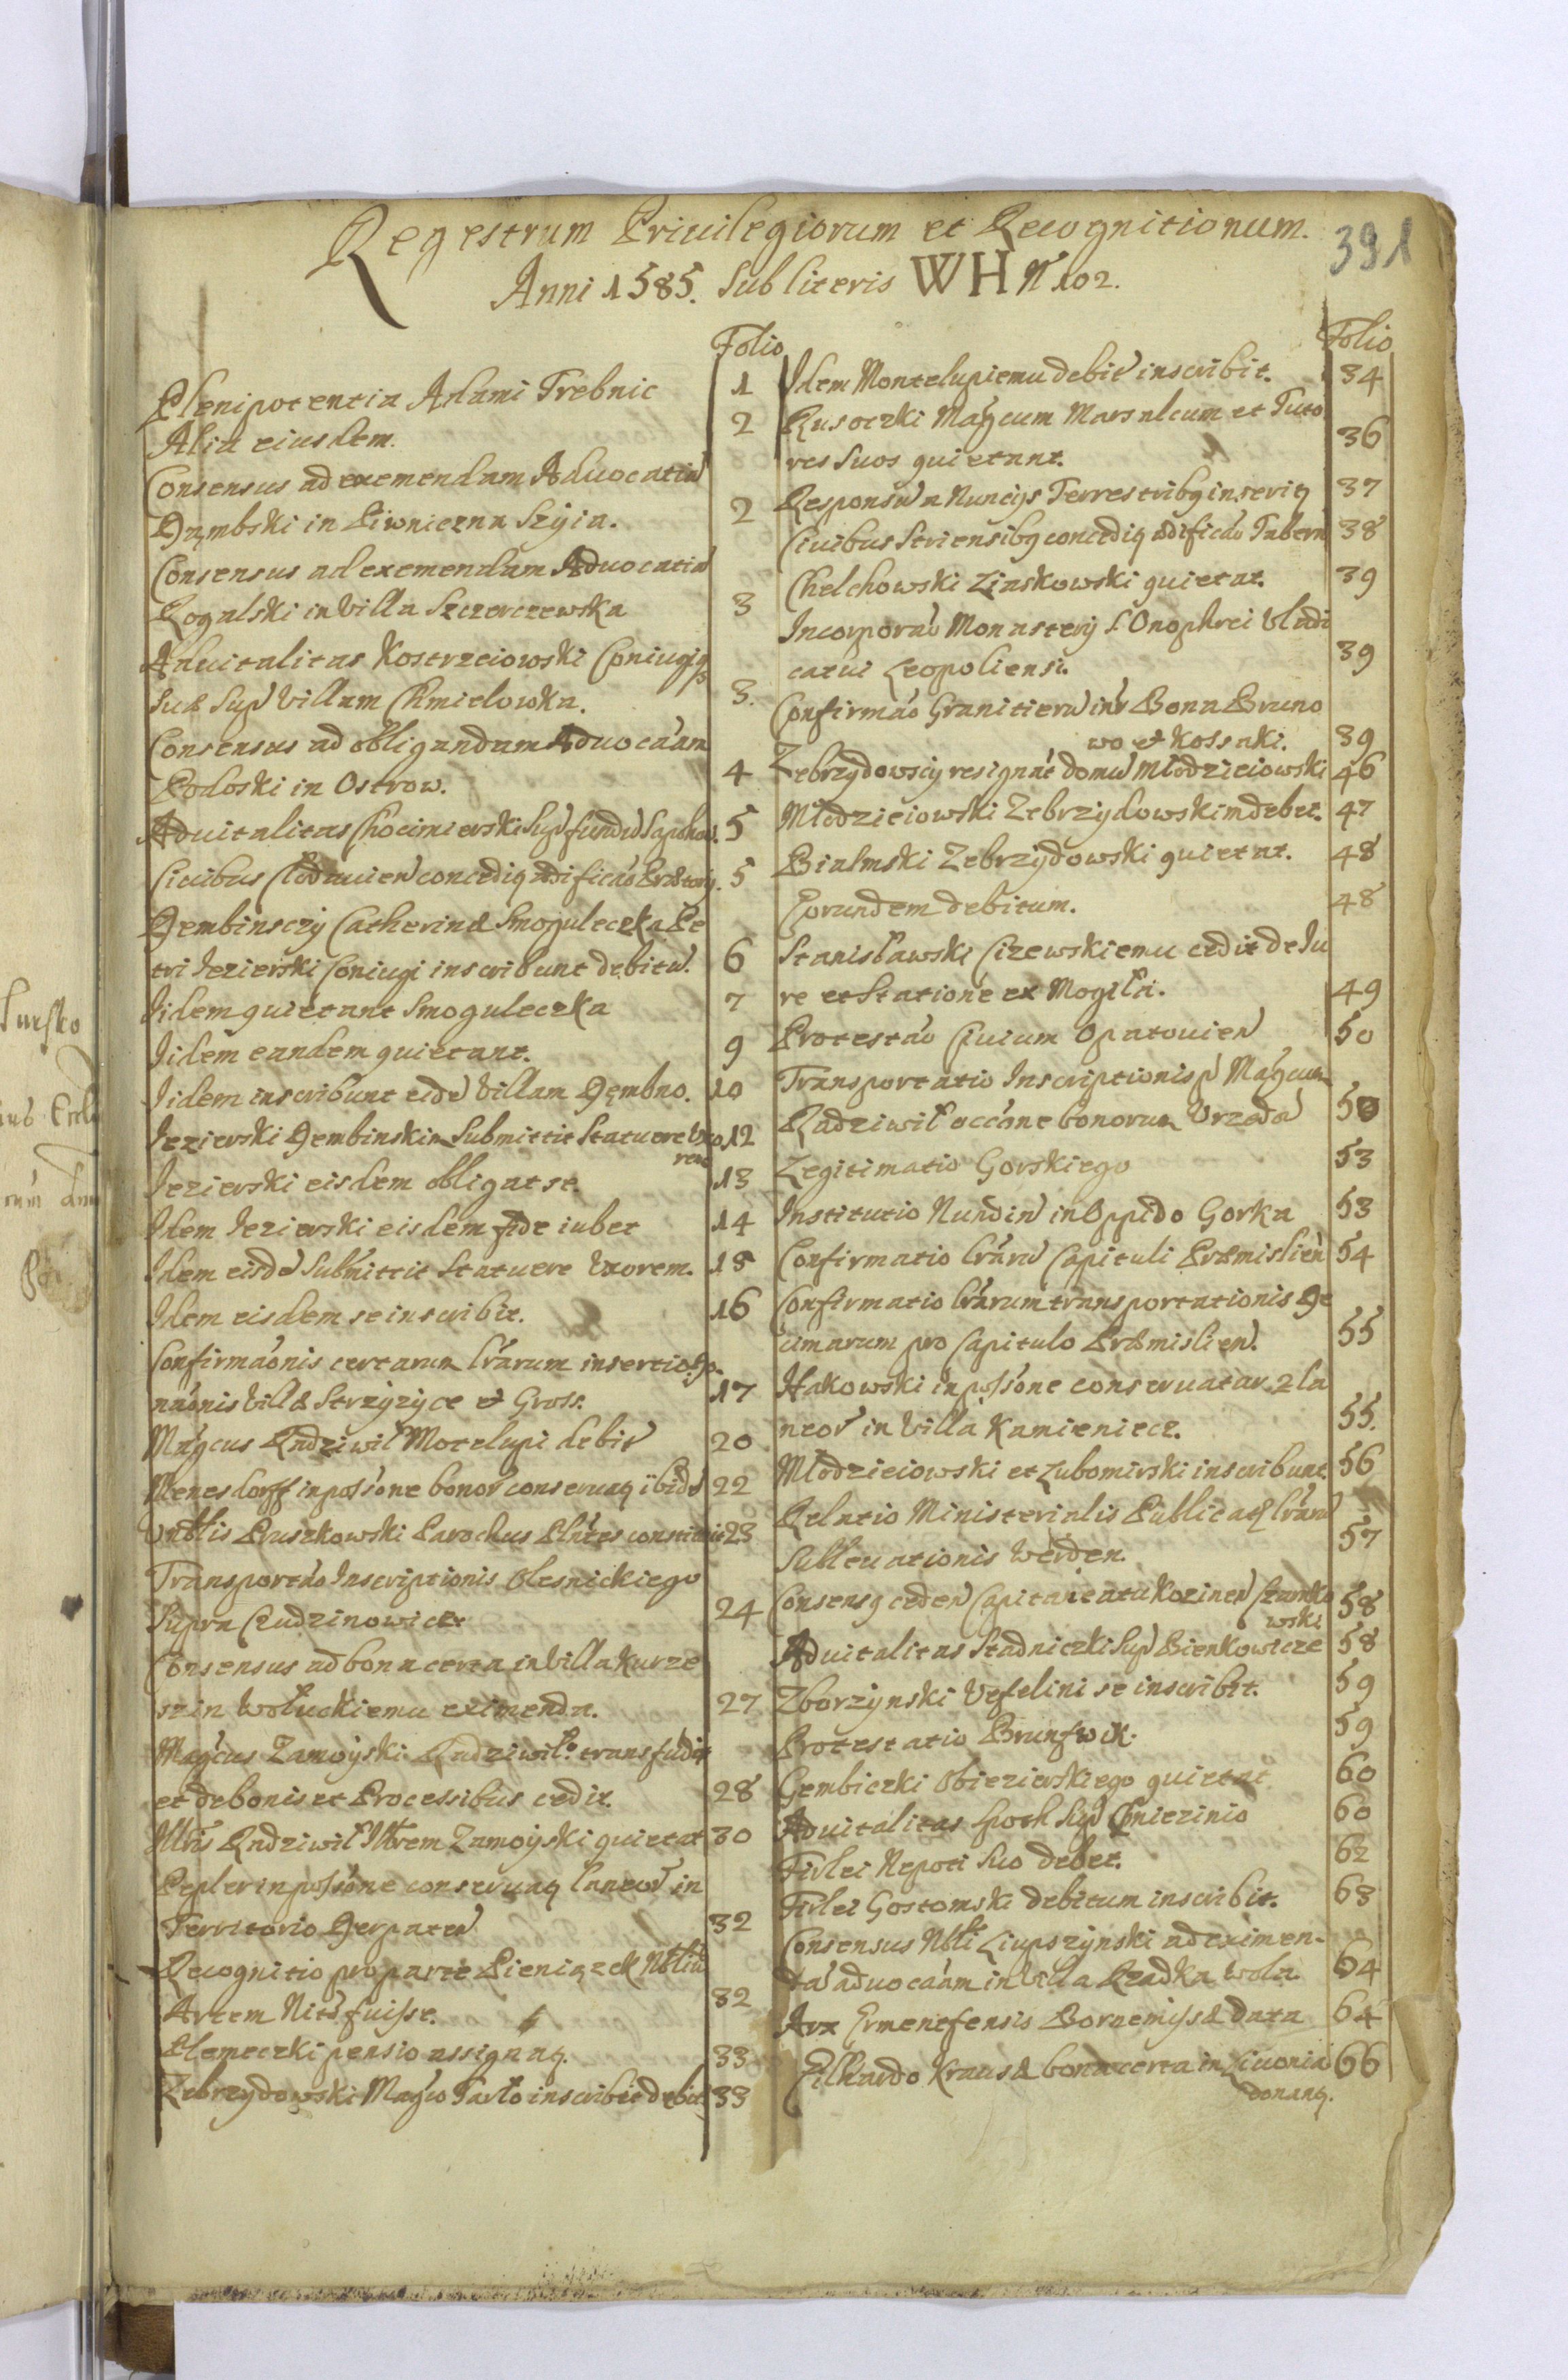 391
Regestrum Priuilegiorum et Recognitionum.
Anni 1585. Sub literis WH N 102.
Folio
Plenipotentia Adami Trebnic 1
Alia eiusdem. 2
Consensus ad exemendam Aduocatiã
Dąmbski in Piwniczna Szyia. 2
Consensus ad exemendam Aduocatiã
Rogalski in Villa Szczerczewska 3
Aduitalitas Kostrzeiowski Coniugiq
suæ Sup Villam Chmielowka. 3.
Consensus ad obligandam Aduocãam
Podoski in Ostrow. 4
Aduitalitas Chocimierski Sup fundũ Sapohow. 5
Ciuibus Clodauien concediq ædificão Prætorij. 5
Dembinsczy Catherinæ Smoguleczka Pe
tri Iezierski Coniugi inscribunt debitũ. 6
Iidem quietant Smoguleczka 7
Iidem eandem quietant. 9
Iidem inscribunt eidẽ Villam Dęmbno. 10
Iezierski Dembinskim Submittit Statuere Vxo 12
rem
Iezierski eisdem obligat se. 13
Idem Iezierski eisdem fide iubet 14
Idem eisdẽ Submittit Statuere Vxorem. 15
Idem eisdem se inscribit. 16
Confirmãonis certarum lrãrum insertio. Do-
nãonis Villæ Strzyzyce et Gross. 17
Mãgcus Radziwil Motelupi debiũ 20
Wenesdorff in possõne bonor conseruaq ibidẽ 22
Vnblis Pruszkowski Parochus Plñtes constituit 23
Transportão Inscriptionis Olesnickiego
Supra Czudzinowicze 24
Consensus ad bona certa in Villa Kurze
szin Wołuckiemu eximenda. 27
Magcus Zamoyski Radziwiło transfudit
et de bonis et Processibus cedit. 28
Illris Radziwił Illrem Zamoyski quietat 30
Pepler in possõne conseruaq laneor in
Territorio Derpaten 32
Recognitio pro parte Pieniązek Nbliũ
Artem Nits fuisse. 32
Hemeczki pensio assignaq. 33
Zebrzydowski Magco Tarło inscribit debit 33
Folio
Idem Montelupiemu debit inscribit. 34
Rusoczki Magcum Marsalcum et Tuto
res Suos quietant. 36
Responsũ a Nuncijs Terrestribq inseriq 37
Ciuibus Striensibq concediq ædificão Tabern 38
Chelchowski Ziaskowski quietat. 39
Incorporão Monasterij S. Onophrei Vladi
catui Leopoliensi. 39
Confirmão Granitierũ intr Bona Bruno
wo et Kossaki. 39
Zebrzydowscy resignãt domũ Młodzieiowski 46
Młodzieiowski Zebrzydowskim debet. 47
Bialmski Zebrzydowski quietat. 48
Eorundem debitum. 48
Stanisławski Cizewskiemu cedit de Iu
re et Statione ex Mogiła. 49
Protestão Ciuium Opatouien 50
Transportatio Inscriptionis p Mãgcum
Radziwił accõne bonorum Vrzeda 50
Legitimatio Gorskiego 53
Institutio Nundin in Oppido Gorka 53
Confirmatio lrãrũ Capituli Præmislien 54
Confirmatio lrãrum transportationis De
cimarum pro Capitulo Præmislien. 55
Hakowski in possõne conseruatar. 2 la
neor in Villa Kamieniecz. 55.
Młodzieiowski et Lubomirski inscribunt. 56
Relatio Ministerialis Publicaq lrãrũ
Subleuationis Werden. 57
Consensq ceden Capitaneatu Kozinen Czarnko 58
wski
Aduitalitas Stadniczki Sup Bienkowicze 58
Zborzynski Vefelini se inscribit. 59
Protestatio Brunfwik. 59
Gembiczki Obiezierskiego quietat 60
Aduitalitas Spoth Sup Chniezinio 60
Firlei Nepoti Suo debet. 62
Firlei Gostomski debitum inscribit. 63
Consensus Nbli Liupszynski ad eximen-
dã aduocãam in Villa Rzadka Wola. 64
Arx Ermenefensis Bornemissæ data 64
Eilhardo Krausæ bona certa in Liuonia 66
donanq.